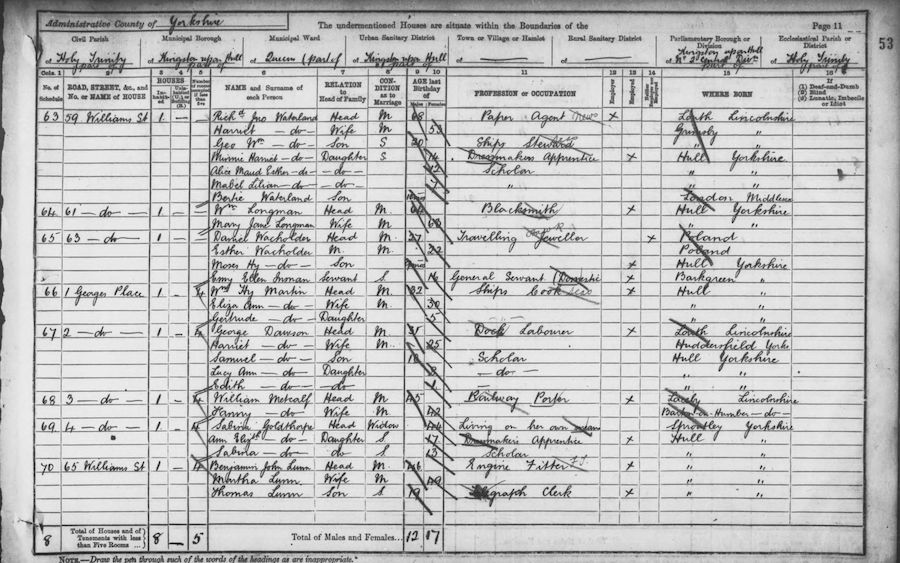 Administrative County of Yorkshire
The undermentioned Houses are situate within the Boundaries of the
Page 11
53
Civil Parish
Municipal Borough
Municipal Ward
Urban Sanitary District
Town or Village or Hamlet
Rural Sanitary District
Parliamentary Borough or Division
Ecclesiastical Parish or District
of Holy Trinity part of
of Kingston upon Hull part of
of Queen (part of
of Kingston upon Hull part of
of
of
of Kingston upon Hull Central Divn part of
of Holy Trinity part of
Cols. 1 2 3 4 5 6 7 8 9 10 11 12 13 14 15 16
No. of Schedule
ROAD, STREET, &c., and No. or NAME of HOUSE
HOUSES
Inhabited
NAME and Surname of each Person
RELATION to Head of Family
CONDITION as to Marriage
AGE last Birthday of
Males Females
PROFESSION or OCCUPATION
Employer
Employed
WHERE BORN
(1) Deaf-and-Dumb
(2) Blind
(3) Lunatic, Imbecile or Idiot
63 59 Williams St 1 - Richd Jno Waterland Head M 68 Paper Agent News x Louth Lincolnshire
Harriet - do - Wife M 53 Grimsby "
Geo Wm - do - Son S 20 Ships Steward " "
Minnie Harriet - do - Daughter S 14 Dressmakers Apprentice x Hull Yorkshire
Alice Maud Esther - do - - do - 12 Scholar " "
Mabel Lilian - do - - do - " " "
Bertie Waterland Son London Middlesex
64 61 - do - 1 - Wm Longman Head M 64 Blacksmith x Hull Yorkshire
Mary Jane Longman Wife M 63 " "
65 63 - do - 1 - Daniel Wacholder Head M 27 Travelling Jeweller x Poland
Esther Wacholder M. M 22 Poland
Moses Hy - do - Son x Hull Yorkshire
Emy Ellen Inman Servant S 16 General Servant (Domestic x Barkgreen "
66 1 Georges Place 1 - 4 Wm Ths Martin Head M 32 Ships Cook x Hull "
Eliza Ann - do - Wife M 30 " "
Gertrude - do - Daughter 5 " "
67 2 - do - 1 - 4 George Dawson Head M 31 Dock Labourer x Louth Lincolnshire
Harriet - do - Wife M 25 Huddersfield Yorks
Samuel - do - Son 10 Scholar Hull Yorkshire
Lucy Ann - do - Daughter - do - " "
Edith - do - - do - " "
68 3 - do - 1 - 4 William Metcalf Head M 45 Railway Porter x Laceby Lincolnshire
Fanny - do - Wife M 42 Barton on Humber - do -
69 4 - do - 1 - 4 Sabina Goldthorpe Head Widow 44 Living on her own means Sproatley Yorkshire
Ann Elizth - do - Daughter S 17 Dressmakers Apprentice x Hull "
Sabina - do - do S 13 Scholar " "
70 65 Williams St 1 4 Benjamin John Lunn Head M 46 Engine Fitter x " "
Martha Lunn Wife M 49 " "
Thomas Lunn Son S 19 Telegraph Clerk x " "
8 Total of Houses and of Tenements with less than Five Rooms 8 - 5 Total of Males and Females... 12 17
NOTE.—Draw the pen through such of the words of the headings as are inappropriate.